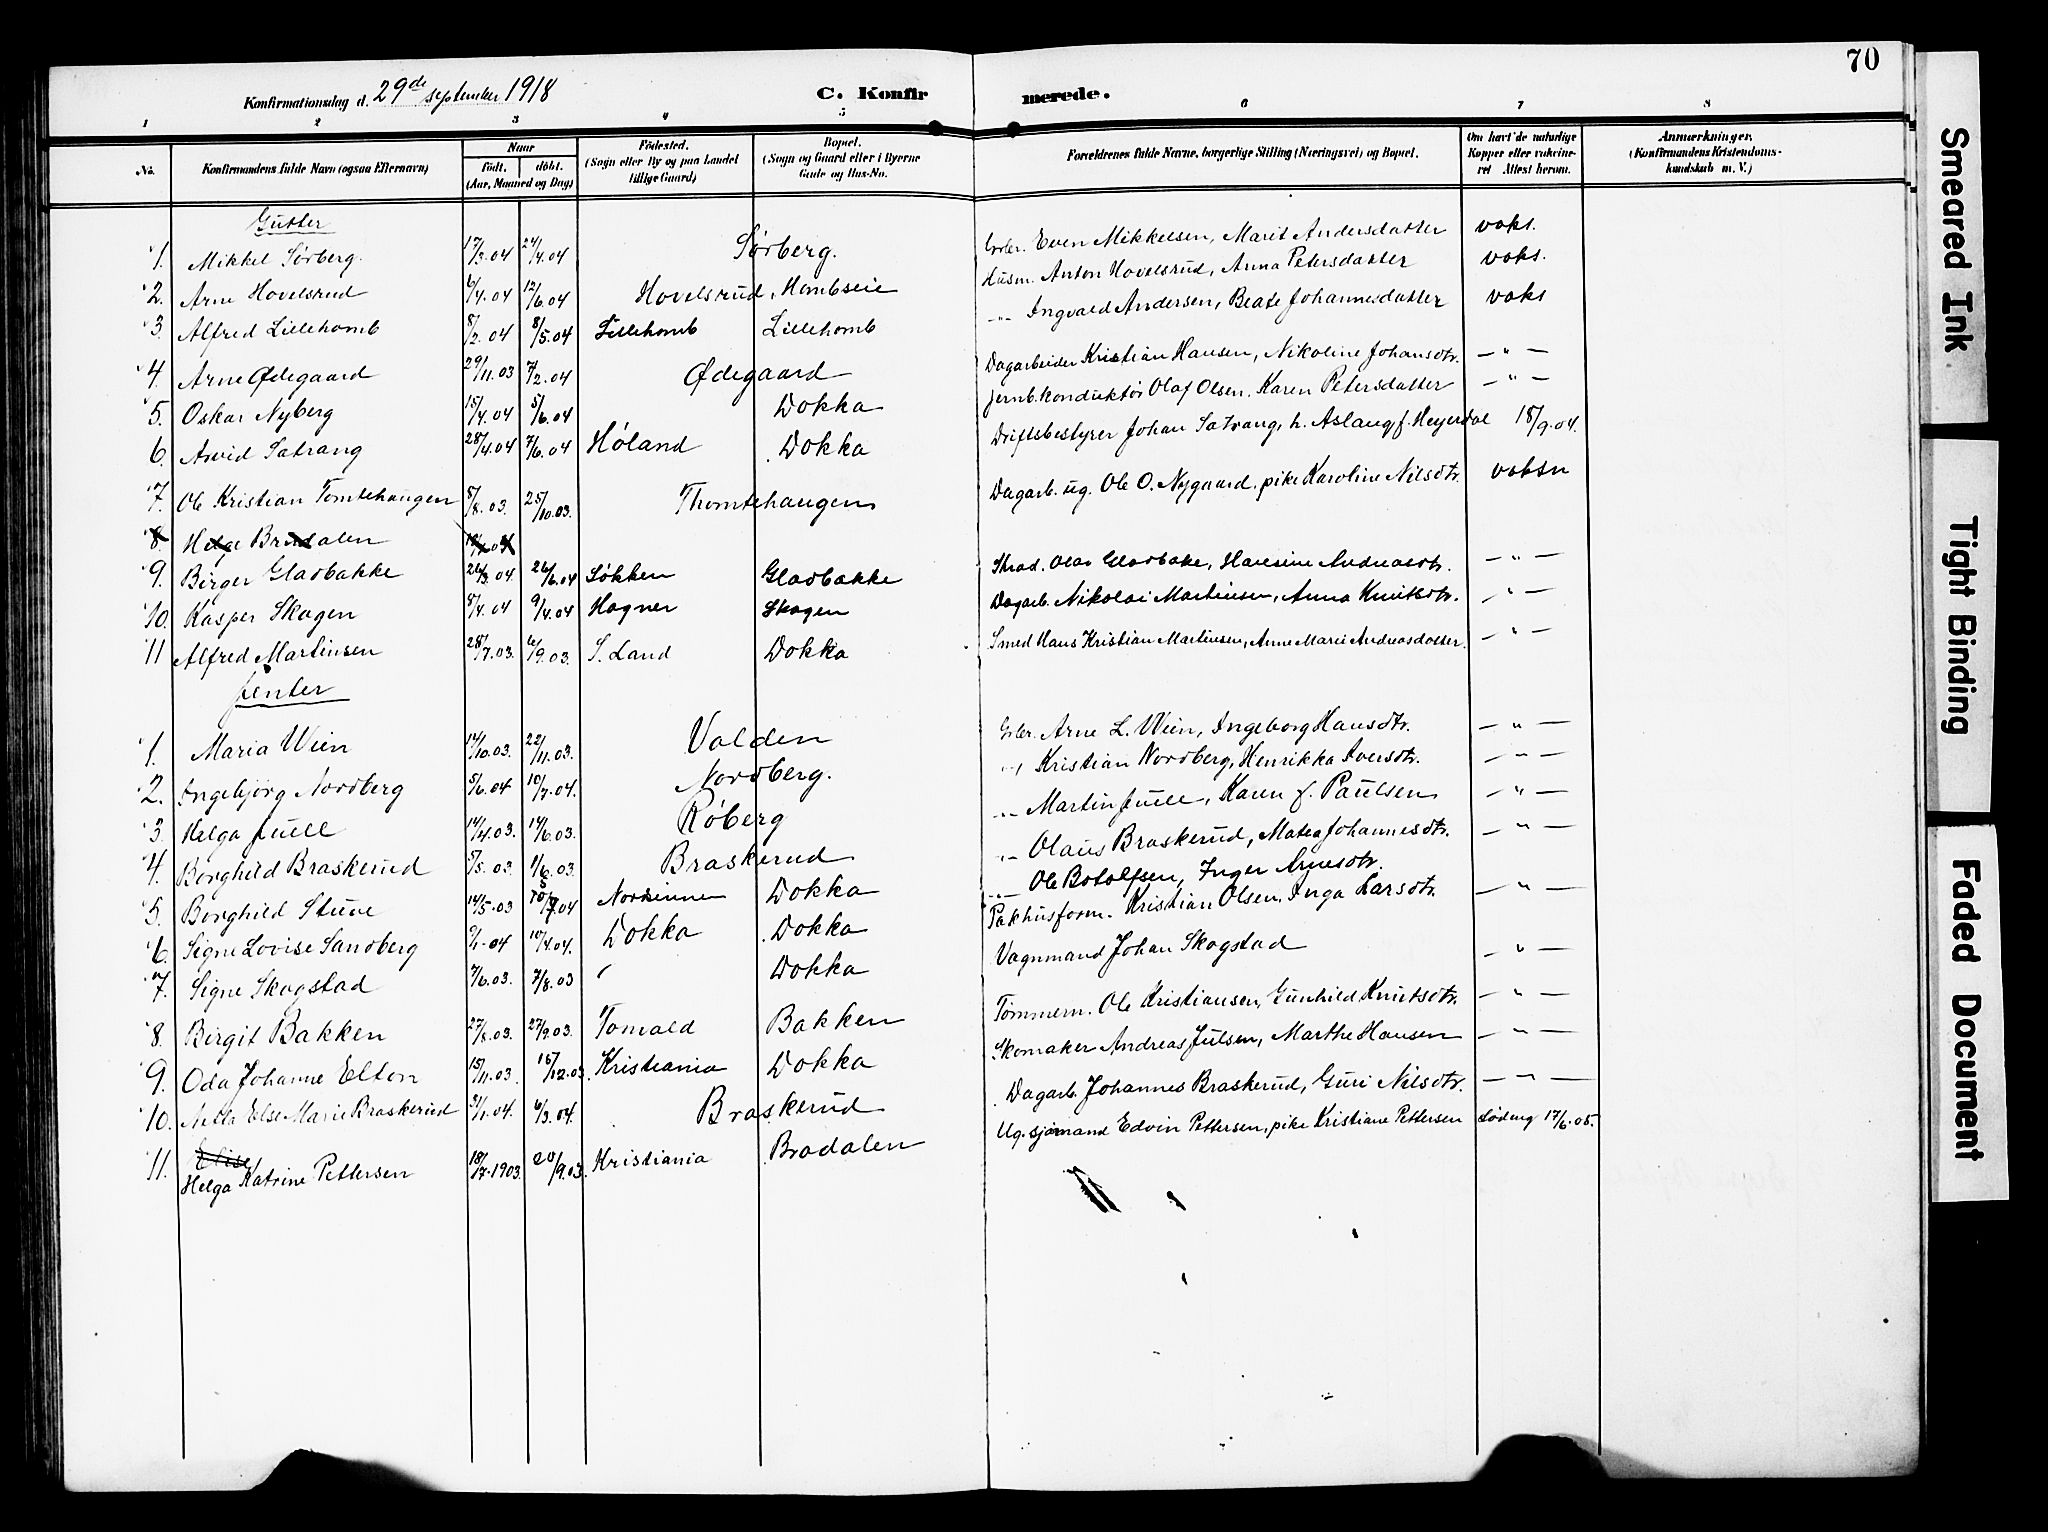 70
Konfirmationsdag d. 29de september 1918
C. Konfirmerede.
1 2 3 4 5 6 7 8
No. Konfirmandens fulde Navn (ogsaa Efternavn) Naar født. døbt. (Aar, Maaned og Dag) Fødested. (Sogn eller By og paa Landet tillige Gaard) Bopæl. (Sogn og Gaard eller i Byerne Gade og Hus-No. Forældrenes fulde Navne, borgerlige Stilling (Næringsvei) og Bopæl. Om havt de naturlige Kopper eller vakcineret Attest herom. Anmærkninger. (Konfirmandens Kristendomskundskab m. V.)
Gutter
1. Mikkel Sørberg. 17/3.04 24/4.04 Sørberg. Even Mikkelsen, Marit Andersdatter voks.
2. Arne Hovelsrud 6/4.04 12/6.04 Hovelsrud, Hombseie Husm. Anton Hovelsrud, Anna Petersdatter voks.
3. Alfred Lillehomb 8/2.04 8/5.04 Lillehomb Lillehomb -"- Ingvald Andersen, Beate Johannesdatter voks
4. Arne Ødegaard 29/11.03 7/2.04 Ødegaard Dagarbeider Kristian Hansen, Nikoline Johansdtr. — " —
5. Oskar Nyberg 15/4.04 5/6.04 Dokka Jernb.konduktør Olaf Olsen. Karen Petersdatter — " —
6. Arvid Satrang 28/4.04 7/6.04 Høland Dokka Driftsbestyrer Johan Satrang, h. Aslaug f. Heyerdal 18/9.04.
7. Ole Kristian Tomtehaugen 5/8.03. 25/10.03. Thomtehaugen Dagarb. ug. Ole O. Nygaard. pike Karoline Nilsdtr. voksn
8. Helge Bradalen
9. Birger Gladbakke 26/3.04. 26/6.04 Søkken Gladbakke Skrad. Olaf Gladbake, Hansine Andreasdtr. — " —
10. Kasper Skogen 8/4.04 9/4.04 Hogner Skogen Dagarb. Nikolai Martinsen, Anna Knutsdtr. — " —
11 Alfred Martinsen 28/7.03. 6/9.03. S. Land Dokka Smed Hans Kristian Martinsen, Anne Marie Andreasdatter. — " —
Jenter
1. Maria Wien 14/10.03. 22/11.03. Volden Arne L. Wien, Ingeborg Hansdtr. — " —
2. Ingebjörg Nordberg 5/6.04 10/7.04. Nordberg. -"- Kristian Nordberg, Henrikka Iversdtr. — " —
3. Helga Juell 14/4.03. 14/6.03. Røberg -"- Martin Juell, Karen f. Paulsen — " —
4. Borghild Braskerud 5/5.03. 1/6.03. Braskerud -"- Olaus Braskerud, Matea Johannesdtr. — " —
5. Borghild Stuve 14/5.03 Nordsinnen Dokka -"- Ole Botolfsen, Inger Arnesdtr.
6. Signe Lovise Sandberg 9/1.04 10/4.04. Dokka Dokka Pakhusform. Kristian Olsen, Inga Larsdtr. — " —
7. Signe Skogstad 7/6.03. 7/8.03 " Dokka Vognmand Johan Skogstad — " —
8. Birgit Bakken 27/8.03. 27/9.03. Tomald Bakken Tømmerm. Ole Kristiansen, Gunhild Knutsdtr. — " —
9. Oda Johanne Elton 15/11.03. 16/12.03. Kristiania Dokka Skomaker Andreas Julsen, Marthe Hansen — " —
10. Netta Else Marie Braskerud 31/1.04. 6/3.04. Braskerud Dagarb. Johannes Braskerud, Guri Nilsdtr. — " —
11. Elise Helga Katrine Pettersen 18/7.1903. 20/9.03. Kristiania Bradalen Ug. sjømand Edvin Pettersen, pike Kristiane Pettersen 17/6.05.
Smeared Ink
Tight Binding
Faded Document